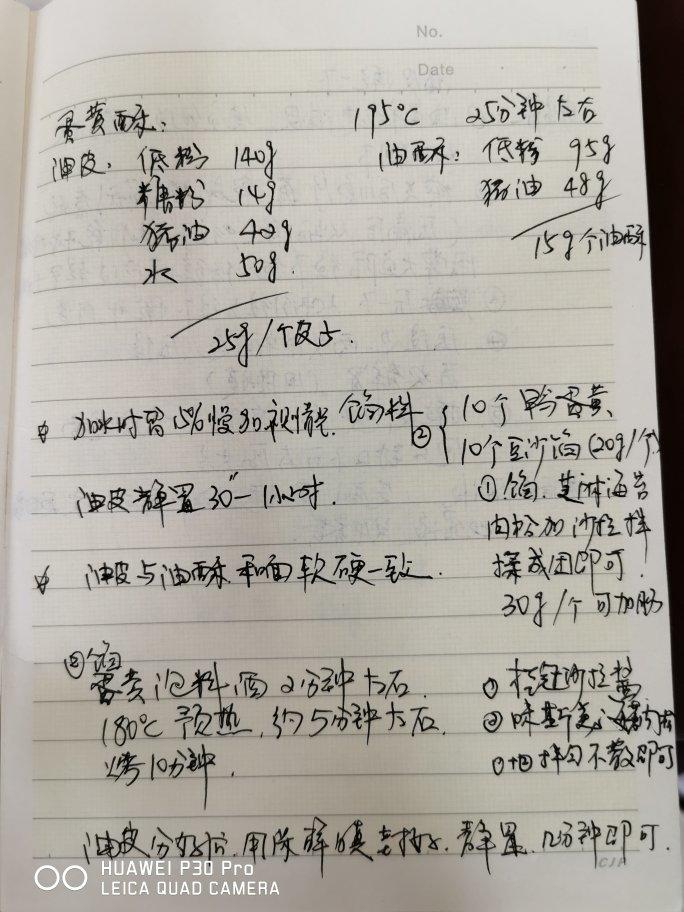 No.
Date
蛋黄酥: 195℃ 25分钟左右
油皮: 低粉 140g 油酥: 低粉 95g
糖粉 14g 猪油 48g
猪油 40g 15g/个油酥
水 50g
25g/个皮
加水时留15%慢加视情况
油皮静置30"一1小时.
油皮与油酥和面软硬一致.
② 10个 蛋黄
10个豆沙馅(20g/个)
①馅. 芝麻海苔
肉松加沙拉拌
揉成团即可.
30g/个 可加肠
②馅
蛋黄泡料酒2分钟左右.
180℃预热, 约5分钟左右.
烤10分钟.
① 沙拉酱
②味斯美
①+② 拌匀不散即可
油皮分好后, 用保鲜膜 好. 静置. 几分钟即可.
HUAWEI P30 Pro
LEICA QUAD CAMERA